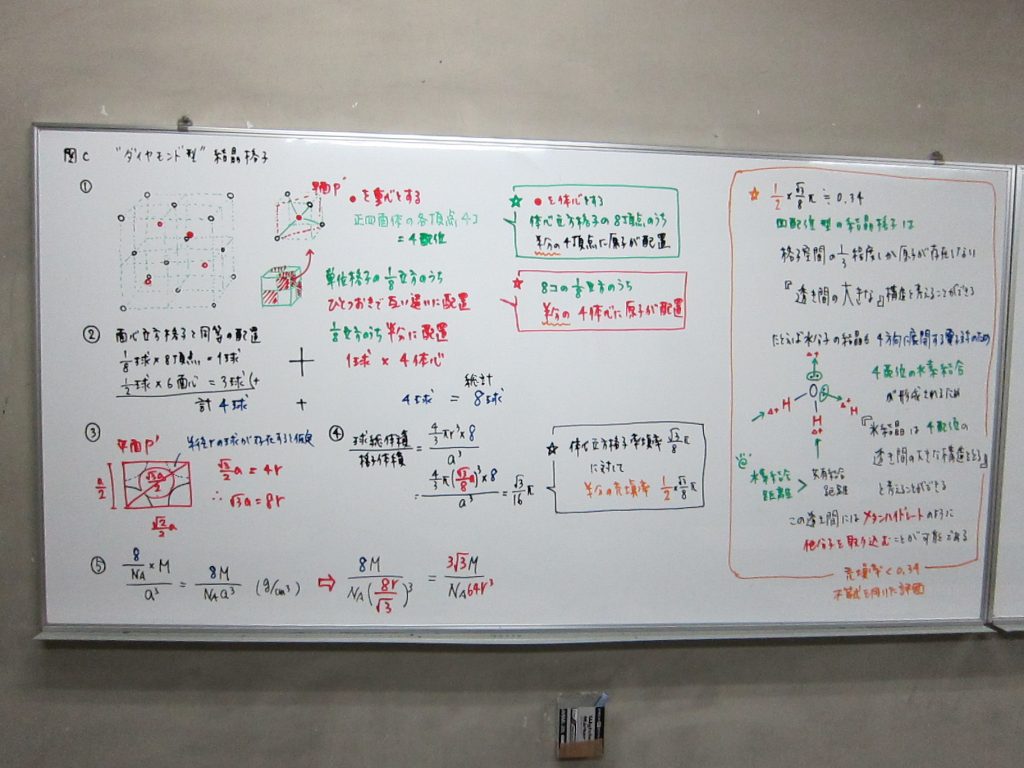 図C "ダイヤモンド型" 結晶格子
①
平面P'
●を重心とする
正四面体の各頂点4コ
= 4配位
単位格子の1/8立方のうち
ひとつおきで互い違いに配置
1/8立方のうち半分に配置
1球 × 4体心
☆ ●を体心とする
体心立方格子の8頂点のうち
半分の4頂点に原子が配置
☆ 8コの1/8立方のうち
半分の4体心に原子が配置
② 面心立方格子と同等の配置
1/8球×8頂点=1球
1/2球×6面心=3球(+
計4球 + 4球 = 8球
総計
③ 平面P'
半径rの球が存在すると仮定
a/2
√3a/2
√2/2 a
√3/2 a = 4r
∴ √3a = 8r
④ 球総体積/格子体積 = 4/3 πr³×8 / a³
= 4/3 π(√3/8 a)³×8 / a³ = √3/16 π
☆ 体心立方格子充填率 √3/8 π
に対して
半分の充填率 1/2×√3/8 π
⑤ 8/NA×M / a³ = 8M/NAa³ (g/cm³) ⇨ 8M/NA(8r/√3)³ = 3√3M/NA64r³
☆ 1/2×√3/8 π ≒ 0.34
四配位型の結晶格子は
格子空間の1/3程度しか原子が存在しない
『透き間の大きな』構造と考えることができる
たとえば水分子の結晶も 4方向に展開する電子対のため
4配位の水素結合
が形成されるため
δ+
H
O
H δ+
H
δ+
『氷結晶は4配位の
透き間の大きな構造をとる』
と考えることができる
水素結合距離 > 共有結合距離
この透き間にはメタンハイドレートのように
他分子を取り込むことが可能である
充填率<0.34
不等式を用いた評価